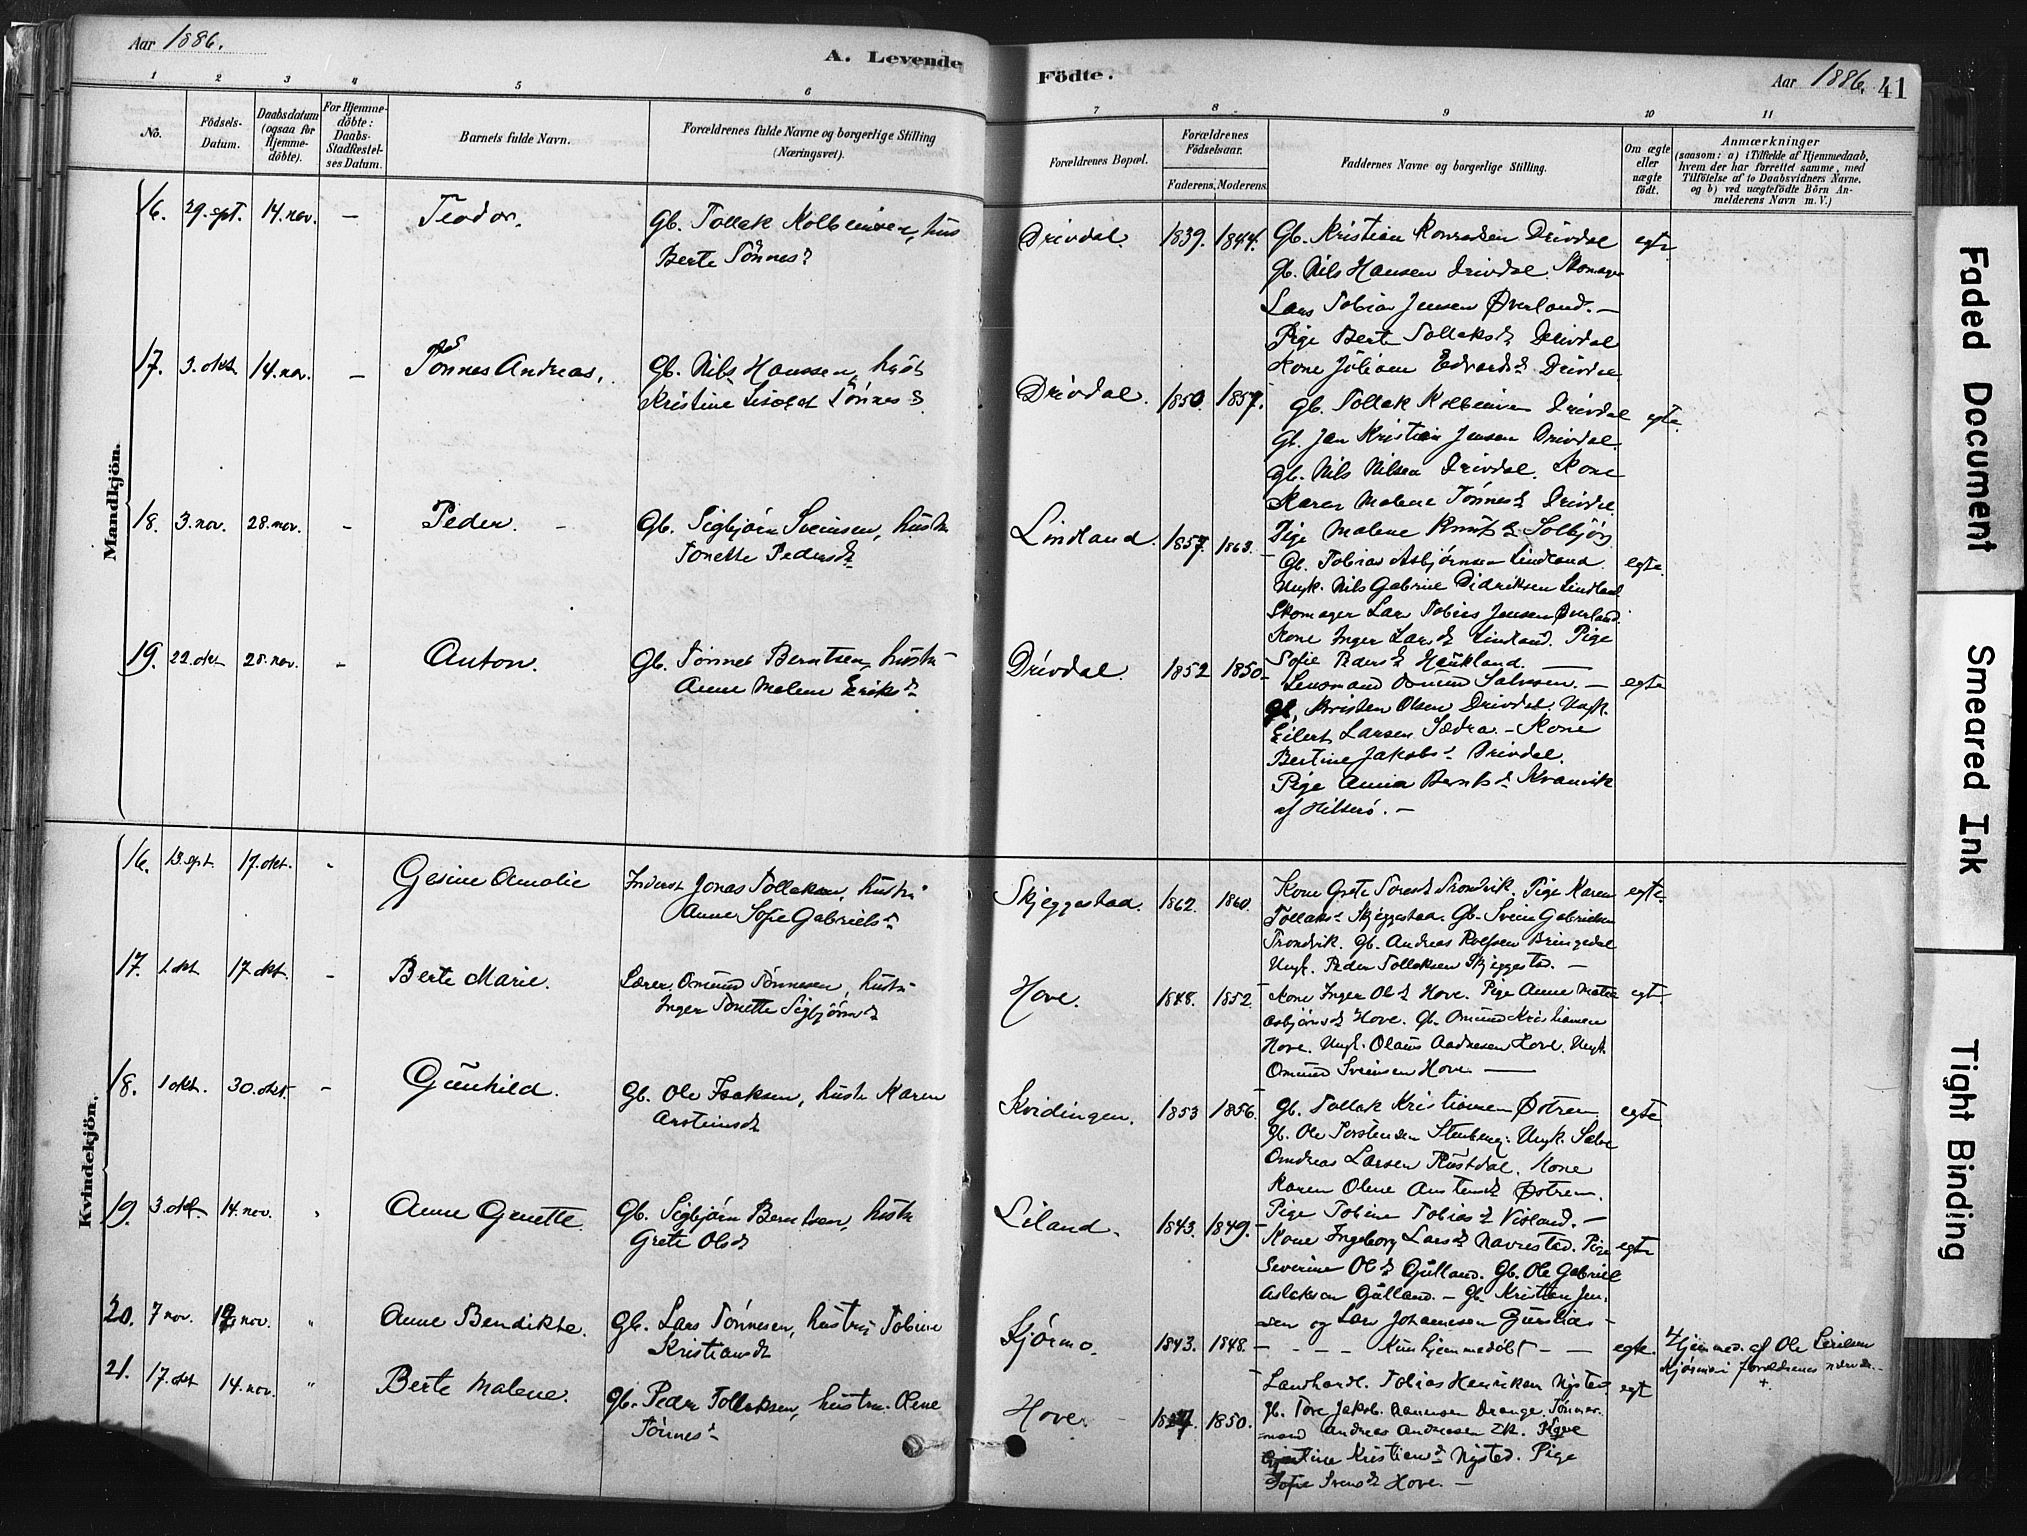 Aar 1886.
A. Levende Födte.
Aar 1886. 41
1 2 3 4 5 6 7 8 9 10 11
No.
Födsels-Datum.
Daabsdatum (ogsaa for Hjemmedöbte).
For Hjemmedöbte: Daabs-Stadfæstelses Datum.
Barnets fulde Navn.
Forældrenes fulde Navne og borgerlige Stilling (Næringsvei).
Forældrenes Bopæl.
Forældrenes Födselsaar.
Faderens. Moderens.
Faddernes Navne og borgerlige Stilling.
Om ægte eller uægte födt.
Anmærkninger
(saasom: a) i Tilfælde af Hjemmedaab, hvem der har forrettet samme, med Tilföielse af to Daabsvidners Navne, og b) ved uægtefödte Börn Anmelderens Navn m. V.)
Mandkjön.
16. 29. spt. 14. nov. — Teodor. Gb. Tollak Kolbeinsen, hus
Berte Tønnesd
Drivdal. 1839. 1844. Gb. Kristian Konradsen Drivdal egte
Gb. Nils Hansen Drivdal. Skomager
Lars Tobias Jensen Øverland. —
Pige Berte Tollaksd Drivdal
Kone Juliane Edvardsd Drivdal
17. 3. okt 14. nov. — Tønnes Andreas. Gb. Nils Hanssen, hust
Kristine Tønnesd
Drivdal. 1850. 1857. Gb. Tollak Kolbeinsen Drivdal egte.
Gb. Jan Kristian Jensen Drivdal.
Gb. Nils Nilsen Drivdal. Kone
Karen Malene Tønnesd Drivdal.
Pige Malene Knutsd Solbjør
18. 3. nov. 28. nov. - Peder. Gb. Sigbjørn Sveinsen, hustr
Tonette Pedersd
Lindland. 1857. 1863. Gb. Tobias Asbjørnsen Lindland. egte.
Ungk. Nils Gabriel Didriksen Lindland
Skomager Lars Tobias Jensen Øverland.
Kone Inger Larsd Lindland. Pige
Sofie Pedersd Haukland. —
19. 22. okt 28. nov. - Anton. Gb. Tønnes Berntsen, hustr
Anne Malene Eriksd
Drivdal. 1852 1850. Lensmand Omund Salvesen. — egte
Gb. Kristen Olsen Drivdal. Ungk.
Eilert Larsen Sædra. — Kone
Bertine Jakobsd Drivdal.
Pige Anna Berntsd Kvanvik
af Hitterø. —
Kvindekjön.
16. 13. spt. 17. okt. - Gesine Amalie Inderst Jonas Tollaksen, hustr
Anne Sofie Gabrielsd
Skjeggestad. 1862. 1860. Kone Grete Toresd Trondvik. Pige Karen egte.
Tollaksd Skjeggestad. Gb. Svein Gabrielsen
Trondvik. Gb. Andreas Rolfsen Bringedal
Ungk. Peder Tollaksen Skjeggestad. —
17. 1. okt 17. okt. - Berte Marie. Lærer Omund Tønnesen, hustr
Inger Tonette Sigbjørnsd
Hove. 1848. 1852. Kone Inger Olsd Hove. Pige Anne Matea egt.
Asbjørnsd Hove. Gb. Omund Kristiansen
Hove. Ungk. Olaus Aadnesen Hove. Ungk.
Omund Sveinsen Hove —
18. 1 okt. 30. okt. - Gunhild. Gb. Ole Isaksen, hustr Karen
Arsteinsd
Kvidingen. 1853 1856. Gb. Tollak Kristiansen Østrem egte
Gb. Ole Torstensen Stenberg. Ungk. Salve
Andreas Larsen Rustdal. Kone
Karen Olene Austensd Østrem.
Pige Tobine Tobiasd Visland. —
19. 3. okt 14. nov. Anne Genette. Gb. Sigbjørn Berntsen, hustr
Grete Olsd
Leland. 1843. 1849. Kone Ingeborg Larsd Navrestad. Pige egte
Severine Olsd Gulland. Gb. Ole Gabriel
Aslaksen Gulland. — Gb. Kristian Jensen og Lars Johannesen
20. 7 nov. nov. " Anne Bendikte. Gb. Lars Tønnesen, hustru Tobine
Kristiansd
Kjørmo. 1843. 1848. - - - Kun hjemmedøbt - - egte. Hjemmed. af Ole
Kjørmo i forældrenes
21. 17. okt 14. nov. " Berte Malene. Gb. Peder Tollaksen, hustru Olene
Tønnesd
Hove. 1850. Landhandl. Tobias Henriksen Nysted egt
Gb. Tore Jakob Drange. Tømmermand Andreas Andreasen
Kristiansd Nysted. Pige
Sofie Svensd Hove. —
Faded Document
Smeared Ink
Tight Binding